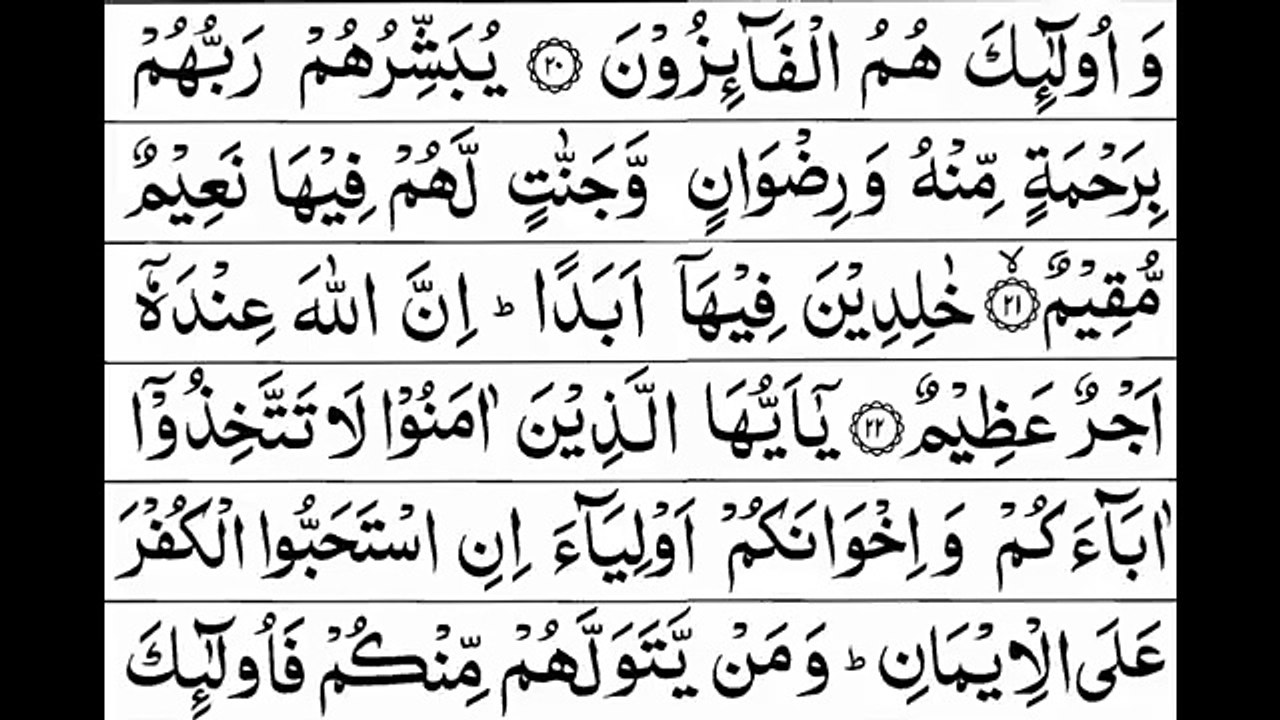 وَ اُولٰٓئِكَ هُمُ الْفَآئِزُوْنَ ﴿۲۰﴾ يُبَشِّرُهُمْ رَبُّهُمْ
بِرَحْمَةٍ مِّنْهُ وَ رِضْوَانٍ وَّ جَنّٰتٍ لَّهُمْ فِيْهَا نَعِيْمٌ
مُّقِيْمٌ ﴿ۙ۲۱﴾ خٰلِدِيْنَ فِيْهَآ اَبَدًا ؕ اِنَّ اللّٰهَ عِنْدَهٗۤ
اَجْرٌ عَظِيْمٌ ﴿۲۲﴾ يٰۤاَيُّهَا الَّذِيْنَ اٰمَنُوْا لَا تَتَّخِذُوْۤا
اٰبَآءَكُمْ وَ اِخْوَانَكُمْ اَوْلِيَآءَ اِنِ اسْتَحَبُّوا الْكُفْرَ
عَلَى الْاِيْمَانِ ؕ وَ مَنْ يَّتَوَلَّهُمْ مِّنْكُمْ فَاُولٰٓئِكَ